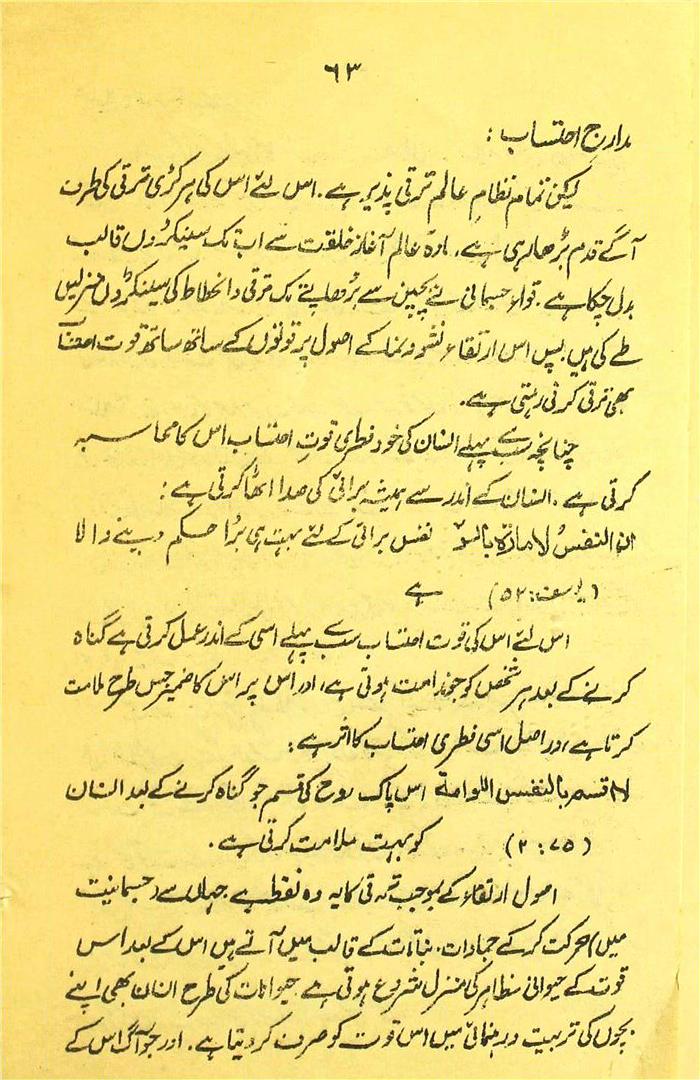 ٦٣
مدارجِ احتساب :
لیکن تمام نظامِ عالم ترقی پذیر ہے۔ اس لئے اس کی ہر کڑی ترقی کی طرف
آگے قدم بڑھا رہی ہے۔ مادۂ عالم آغازِ خلقت سے اب تک سینکڑوں قالب
بدل چکا ہے۔ قواءِ جسمانی نے بچپن سے بڑھاپے تک ترقی و انحطاط کی سینکڑوں منزلیں
طے کی ہیں بس اس ارتقاء نشو و نما کے اصول پر قوتوں کے ساتھ ساتھ قوت احتساب
بھی ترقی کرتی رہتی ہے۔
چنانچہ سب سے پہلے انسان کی خود فطری قوتِ احتساب اس کا محاسبہ
کرتی ہے۔ انسان کے اندر سے ہمیشہ برائی کی صدا اٹھا کرتی ہے :
ان النفسُ لامارۃ بالسوٓ نفس برائی کے لئے بہت ہی بُرا حکم دینے والا
(یوسف : ۵۲) ہے
اس لئے اس کی قوت احتساب سب سے پہلے اسی کے اندر عمل کرتی ہے گناہ
کرنے کے بعد ہر شخص کو جو ندامت ہوتی ہے، اور اس پر اس کا ضمیر جس طرح ملامت
کرتا ہے، در اصل اسی فطری احتساب کا اثر ہے :
لا اقسم بالنفس اللوامة اس پاک روح کی قسم جو گناہ کرنے کے بعد انسان
(۲ : ۷۵) کو بہت ملامت کرتی ہے۔
اصول ارتقاء کے بموجب ترقی کا یہ وہ نقطہ ہے جہاں سے جسمانیت
میں) حرکت کر کے جمادات۔ نباتات کے قالب میں آتے ہیں اس کے بعد اس
قوت کے حیوانی مظاہر کی منزل شروع ہوتی ہے حیوانات کی طرح انسان بھی اپنے
بچوں کی تربیت و رہنمائی میں اس قوت کو صرف کر دیتا ہے۔ اور جو آگ اس کے